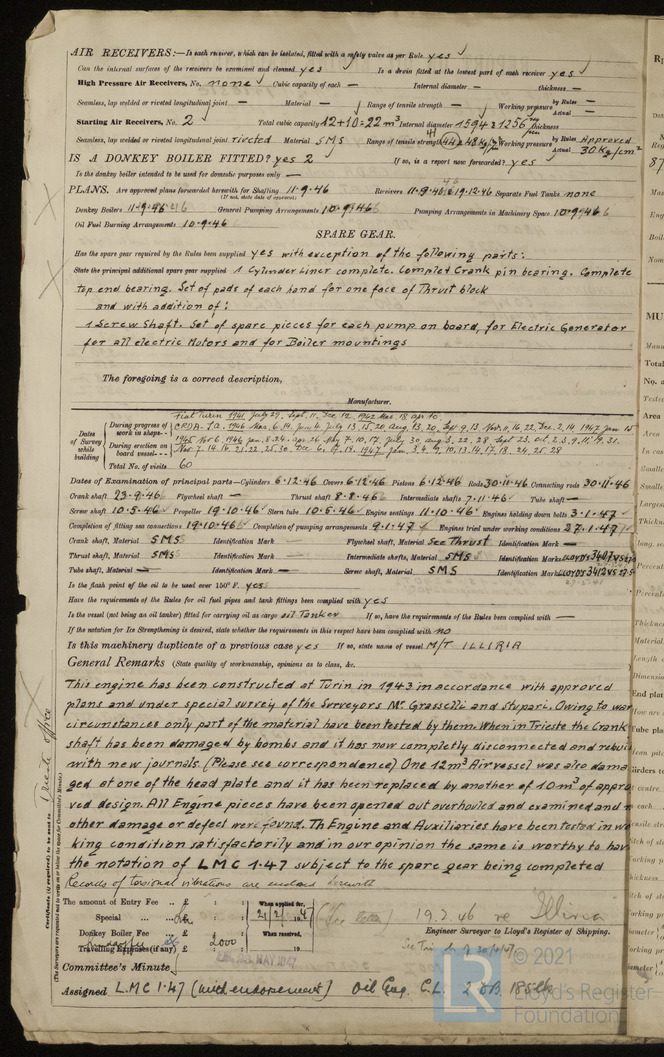 AIR RECEIVERS:—Is each receiver, which can be isolated, fitted with a safety valve as per Rule yes
Can the internal surfaces of the receivers be examined and cleaned yes Is a drain fitted at the lowest part of each receiver yes
High Pressure Air Receivers, No. none Cubic capacity of each — Internal diameter — thickness —
Seamless, lap welded or riveted longitudinal joint — Material — Range of tensile strength — Working pressure by Rules — Actual —
Starting Air Receivers, No. 2 Total cubic capacity 12+10=22 m³ Internal diameter 1594 & 1256 thickness
Seamless, lap welded or riveted longitudinal joint riveted Material SMS Range of tensile strength Working pressure by Rules Approved Actual 30 Kg/cm²
IS A DONKEY BOILER FITTED? yes 2 If so, is a report now forwarded? yes
Is the donkey boiler intended to be used for domestic purposes only —
PLANS. Are approved plans forwarded herewith for Shafting 11.9.46 Receivers 11.9.46 & 19.12.46 Separate Fuel Tanks none
(If not, state date of approval)
Donkey Boilers 11.9.46 General Pumping Arrangements 10.9.46 Pumping Arrangements in Machinery Space 10.9.46
Oil Fuel Burning Arrangements 10.9.46
SPARE GEAR.
Has the spare gear required by the Rules been supplied yes with exception of the following parts:
State the principal additional spare gear supplied 1 Cylinder Liner complete. Complet Crank pin bearing. Complete
top end bearing. Set of pads of each hand for one face of Thrust block
and with addition of:
1 Screw Shaft. Set of spare pieces for each pump on board, for Electric Generator
for all electric Motors and for Boiler mountings
The foregoing is a correct description,
Manufacturer.
Fiat Turin 1941 July 29, Sept. 11, Dec. 12, 1942 Mar. 18 apr. 10
Dates of Survey while building
During progress of work in shops--
During erection on board vessel---
Total No. of visits 60
Dates of Examination of principal parts—Cylinders 6.12.46 Covers 6.12.46 Pistons 6.12.46 Rods 30.11.46 Connecting rods 30.11.46
Crank shaft 23.9.46 Flywheel shaft — Thrust shaft 8.8.46 Intermediate shafts 7.11.46 Tube shaft —
Screw shaft 10.5.46 Propeller 19.10.46 Stern tube 10.5.46 Engine seatings 11.10.46 Engines holding down bolts 3.1.47
Completion of fitting sea connections 19.10.46 Completion of pumping arrangements 9.1.47 Engines tried under working conditions 27.1.47
Crank shaft, Material SMS Identification Mark — Flywheel shaft, Material See Thrust Identification Mark —
Thrust shaft, Material SMS Identification Mark — Intermediate shafts, Material SMS Identification Marks LLOYD'S
Tube shaft, Material — Identification Mark — Screw shaft, Material SMS Identification Mark LLOYD'S
Is the flash point of the oil to be used over 150° F. yes
Have the requirements of the Rules for oil fuel pipes and tank fittings been complied with yes
Is the vessel (not being an oil tanker) fitted for carrying oil as cargo oil Tanker If so, have the requirements of the Rules been complied with —
If the notation for Ice Strengthening is desired, state whether the requirements in this respect have been complied with no
Is this machinery duplicate of a previous case yes If so, state name of vessel M/T ILLIRIA
General Remarks (State quality of workmanship, opinions as to class, &c.
This engine has been constructed at Turin in 1943 in accordance with approved
plans and under special survey of the Surveyors Mr. Grasselli and Stupari. Owing to war
circumstances only part of the material have been tested by them. When in Trieste the Crank
shaft has been damaged by bombs and it has now completly disconnected and rebui
with new journals. (Please see correspondence) One 12m³ Air vessel was also dama
ged at one of the head plate and it has been replaced by another of 10m³ of appro
ved design. All Engine pieces have been opened out overhouled and examined and n
other damage or defect were found. Th Engine and Auxiliaries have been tested in wo
king condition satisfactorily and in our opinion the same is worthy to hav
the notation of LMC 1.47 subject to the spare gear being completed
Records of torsional vibrations are enclosed herewith
The amount of Entry Fee .. £ : : When applied for,
Special ... ... £ : : 21/2/1947 19.2.46 re Illiria
Donkey Boiler Fee ... £ : : When received, Engineer Surveyor to Lloyd's Register of Shipping.
Travelling Expenses (if any) £ 2000 19
Committee's Minute
Assigned LMC 1.47 (with endorsement) Oil Eng. C.L. 2 DB. 185 lb
Certificate (if required) to be sent to Trieste office
(The Surveyors are requested not to write on or below the space for Committee's Minute.)
LR © 2021
Lloyd's Register
Foundation